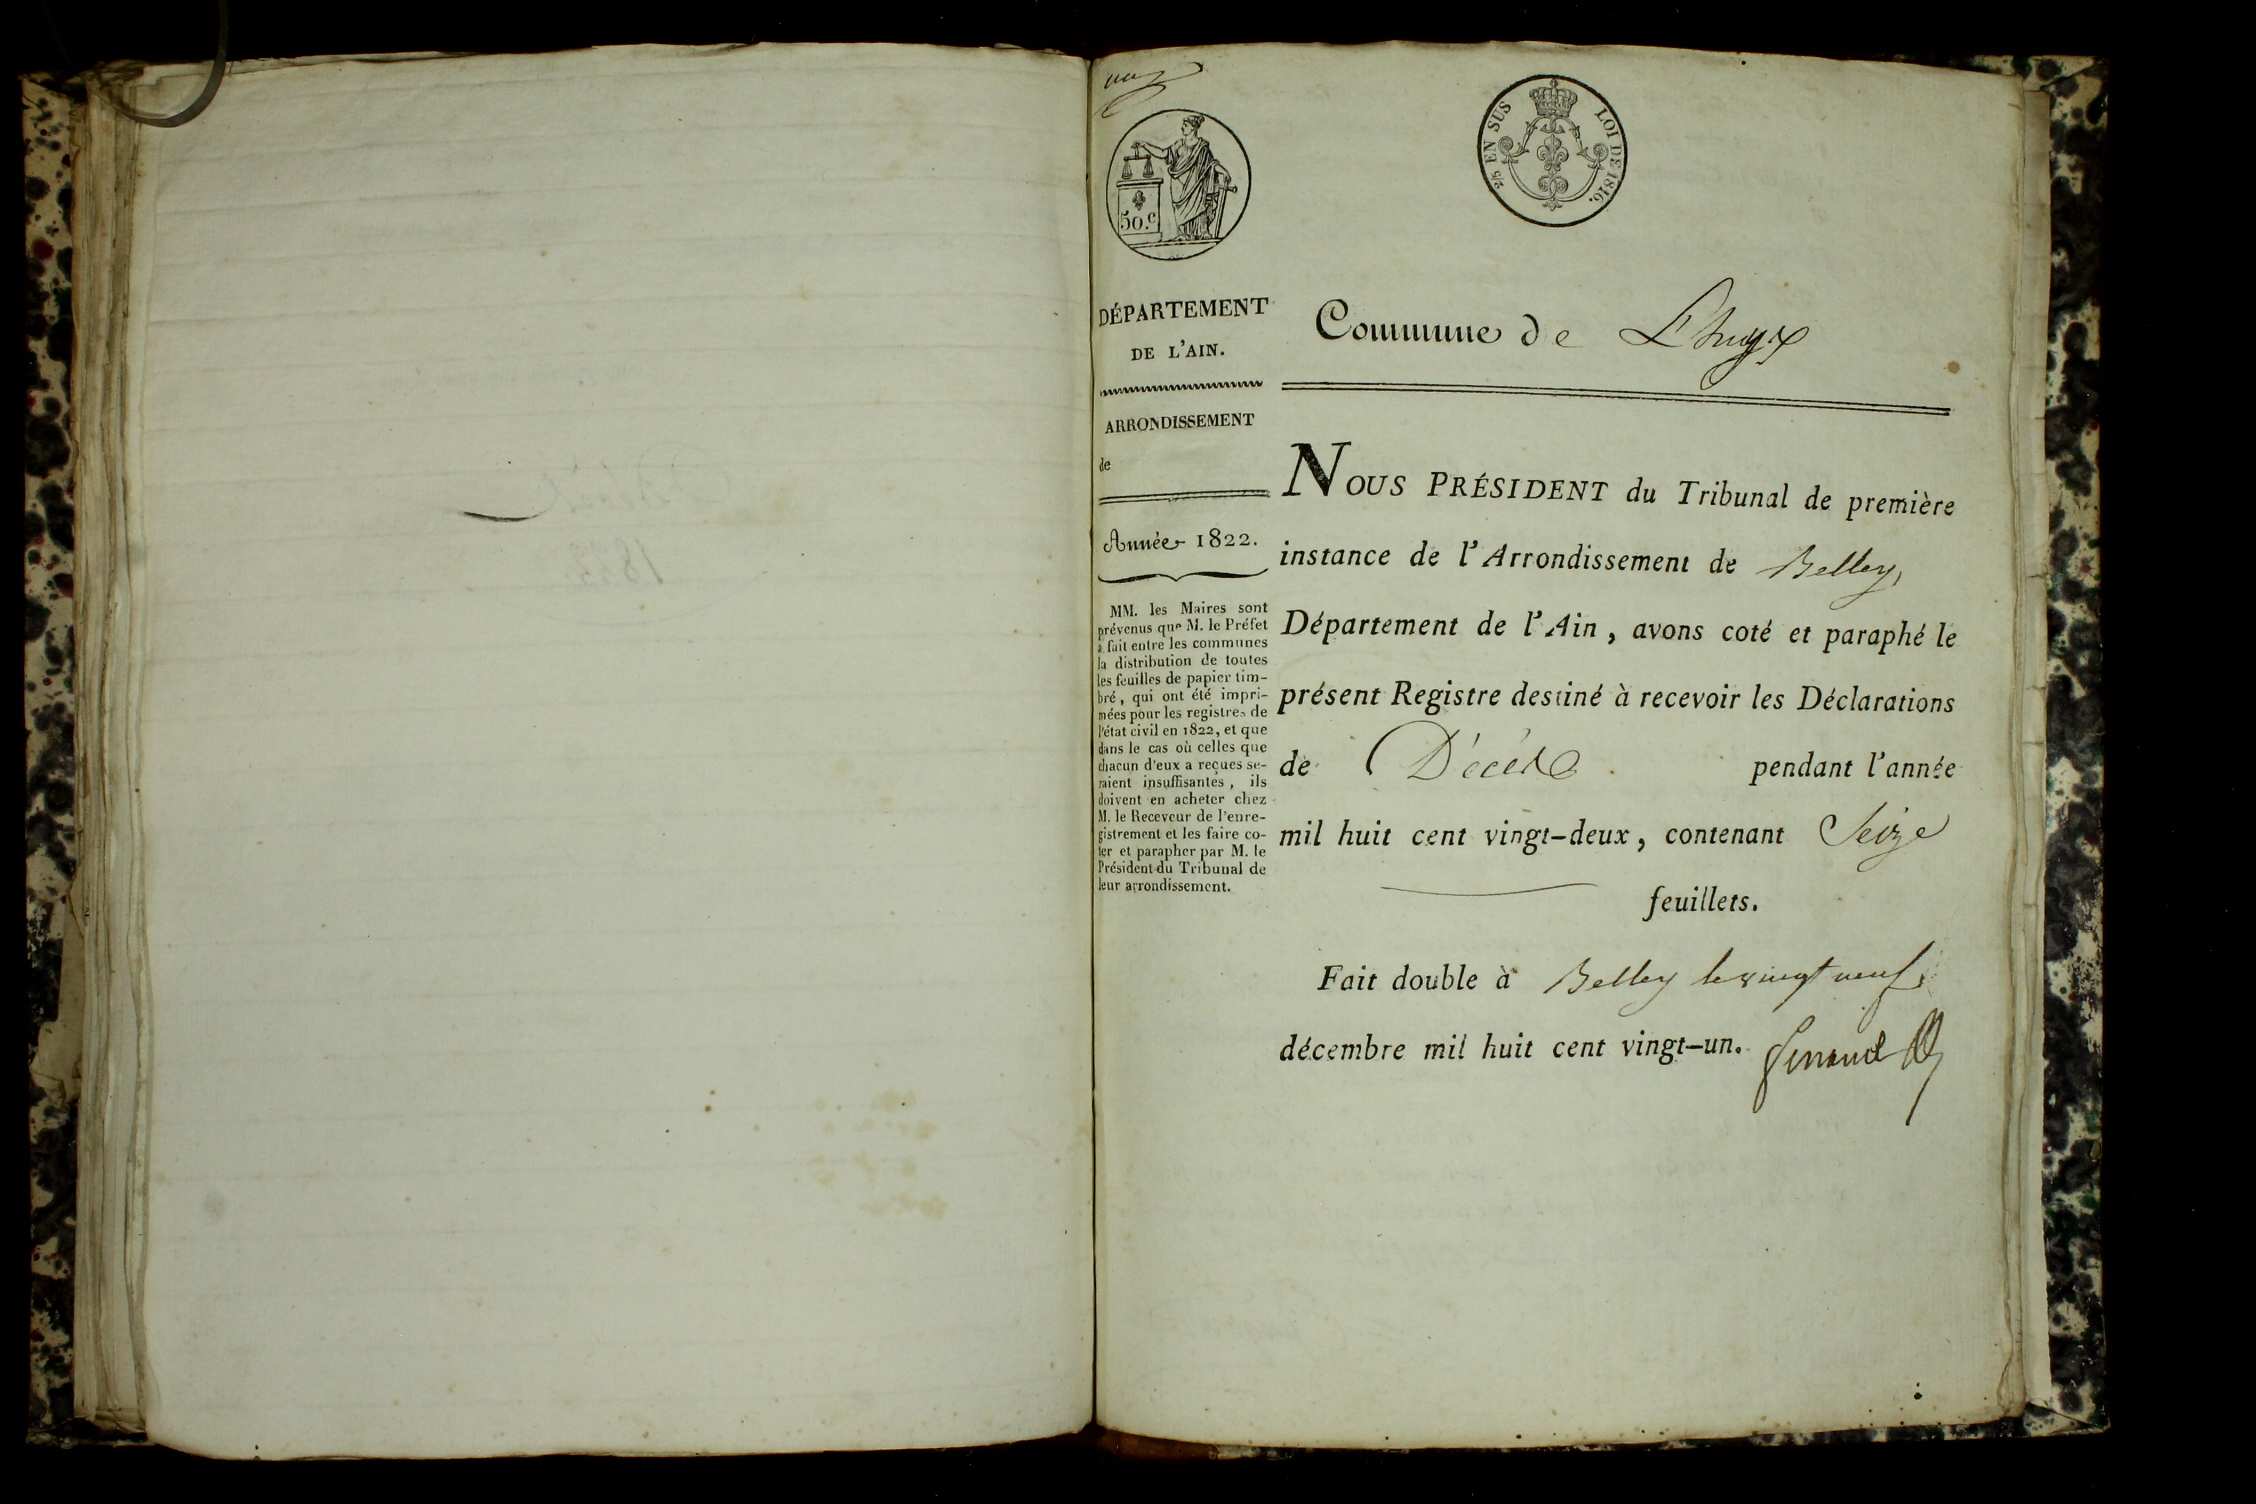 50.c
2/5 EN SUS
LOI DE 1816.
DÉPARTEMENT
DE L'AIN.
ARRONDISSEMENT
de
Année 1822.
MM. les Maires sont
prévenus que M. le Préfet
a fait entre les communes
la distribution de toutes
les feuilles de papier tim-
bré, qui ont été impri-
mées pour les registres de
l'état civil en 1822, et que
dans le cas où celles que
chacun d'eux a reçues se-
raient insuffisantes, ils
doivent en acheter chez
M. le Receveur de l'enre-
gistrement et les faire co-
ter et parapher par M. le
Président du Tribunal de
leur arrondissement.
Commune de Lhuyx
NOUS PRÉSIDENT du Tribunal de première
instance de l'Arrondissement de Belley,
Département de l'Ain, avons coté et paraphé le
présent Registre destiné à recevoir les Déclarations
de Décès pendant l'année
mil huit cent vingt-deux, contenant Seize
feuillets.
Fait double à Belley le vingt neuf
décembre mil huit cent vingt-un.